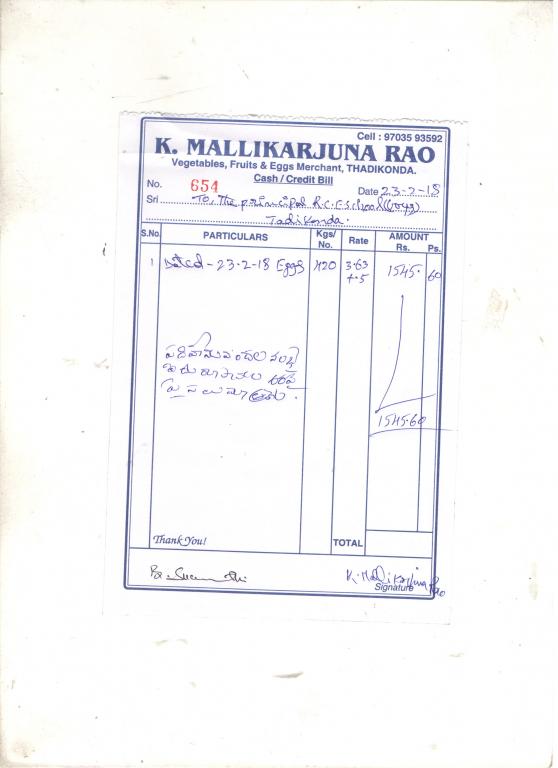 Cell : 97035 93592
K. MALLIKARJUNA RAO
Vegetables, Fruits & Eggs Merchant, THADIKONDA.
Cash / Credit Bill
No. 654 Date 23-2-18
Sri To, The principal A.C.E School (Boys)
Tadikonda.
S.No. PARTICULARS Kgs/ No. Rate AMOUNT Rs. Ps.
1 Dated - 23-2-18 Eggs 420 3.63 1545. 60
+.5
1545.60
Thank You!
TOTAL
K. Mallikarjuna Rao
Signature